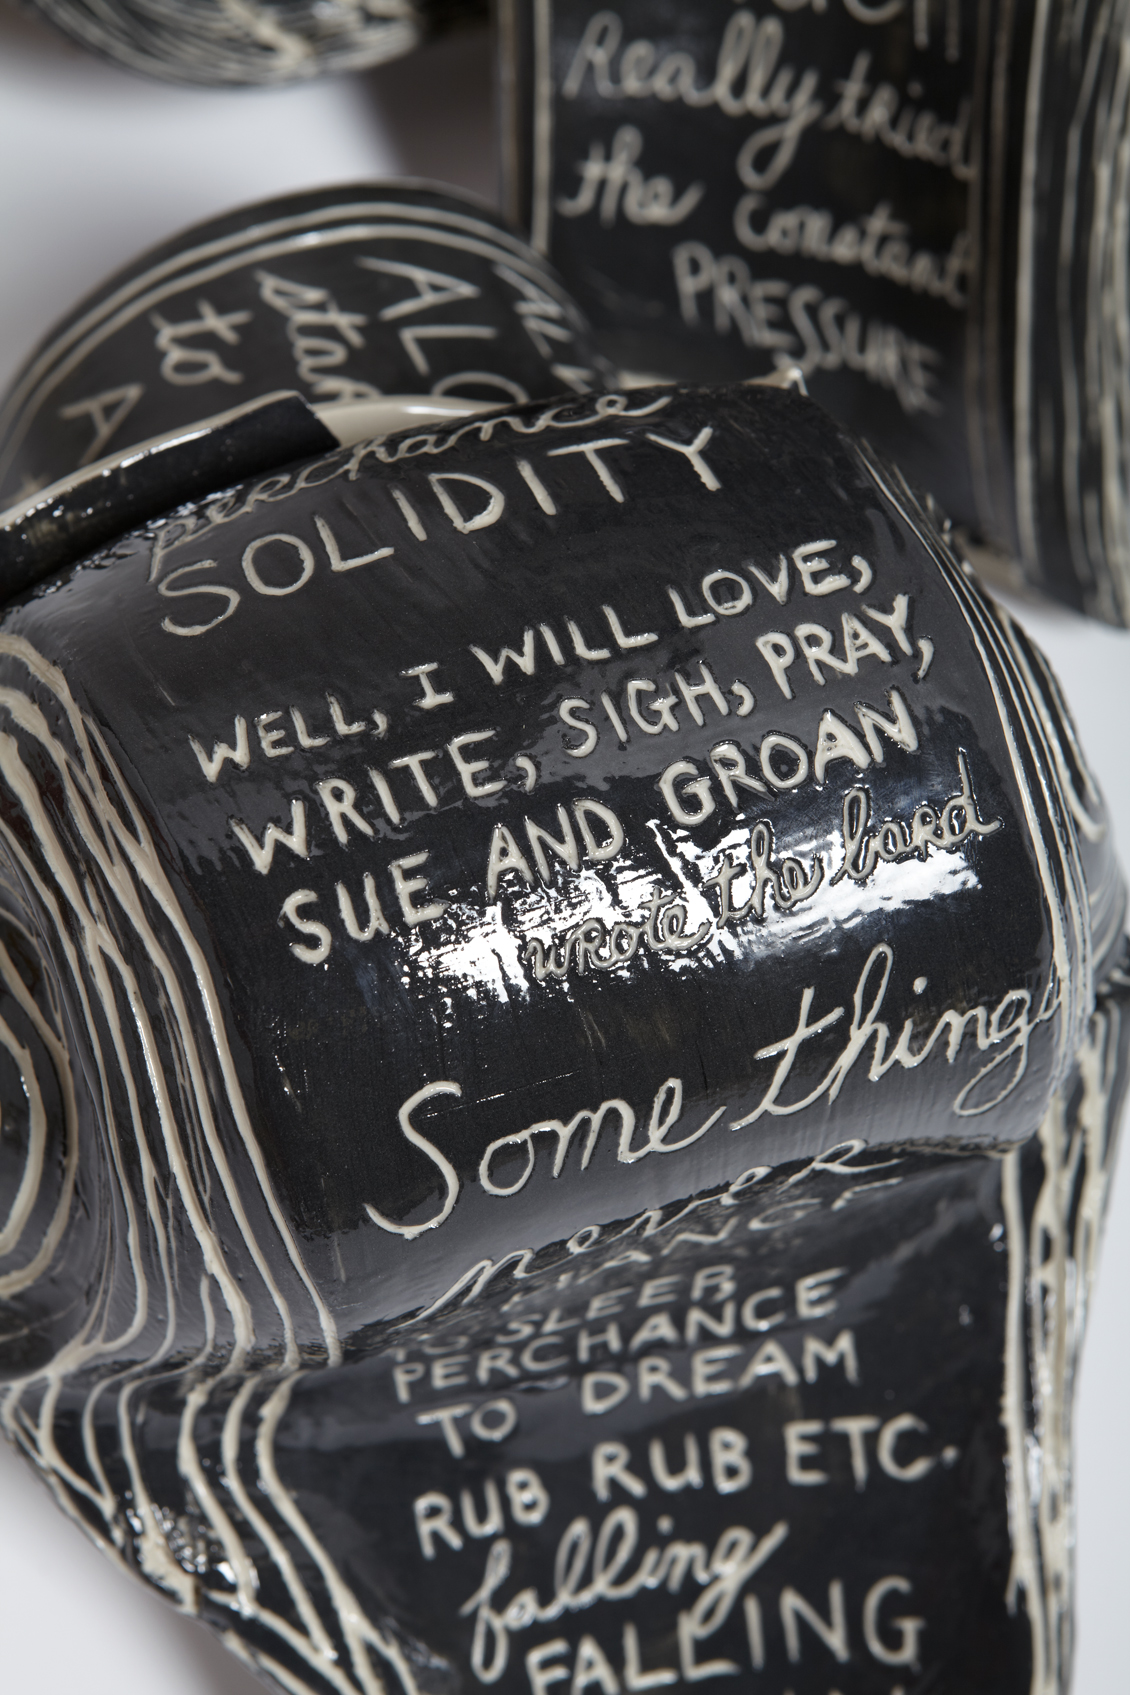 Really tried
the constant
PRESSURE
ALO
to
A
perchance
SOLIDITY
WELL, I WILL LOVE,
WRITE, SIGH, PRAY,
SUE AND GROAN
wrote the bard
Some things
never
TO SLEEP
PERCHANCE
TO DREAM
RUB RUB ETC.
falling
FALLING